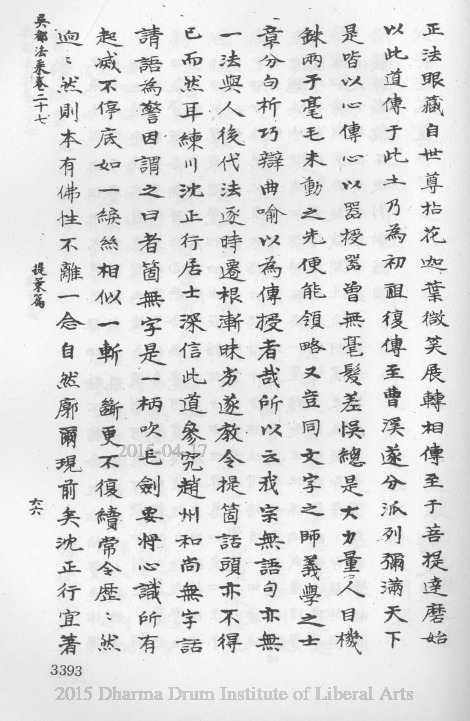 正法眼藏自世尊拈花迦葉微笑展轉相傳至于菩提達磨始
以此道傳于此土乃為初祖復傳至曹溪遂分派列彌滿天下
是皆以心傳心以器授器曾無毫髮差悞總是大力量人目機
銖兩于毫毛未動之先便能領略又豈同文字之師義學之士
章分句析巧辯曲喻以為傳授者哉所以云我宗無語句亦無
一法與人後代法逐時遷根漸昧劣遂教令提箇話頭亦不得
已而然耳練川沈正行居士深信此道參究趙州和尚無字話
請語為警因謂之曰者箇無字是一柄吹毛劍要將心識所有
起滅不停底如一綟絲相似一斬一斷更不復續常令歷歷然
逈逈然則本有佛性不離一念自然廓爾現前矣沈正行宜著
吳都法乘卷二十七
提策篇
六六
3393
2015-04-17
2015 Dharma Drum Institute of Liberal Arts